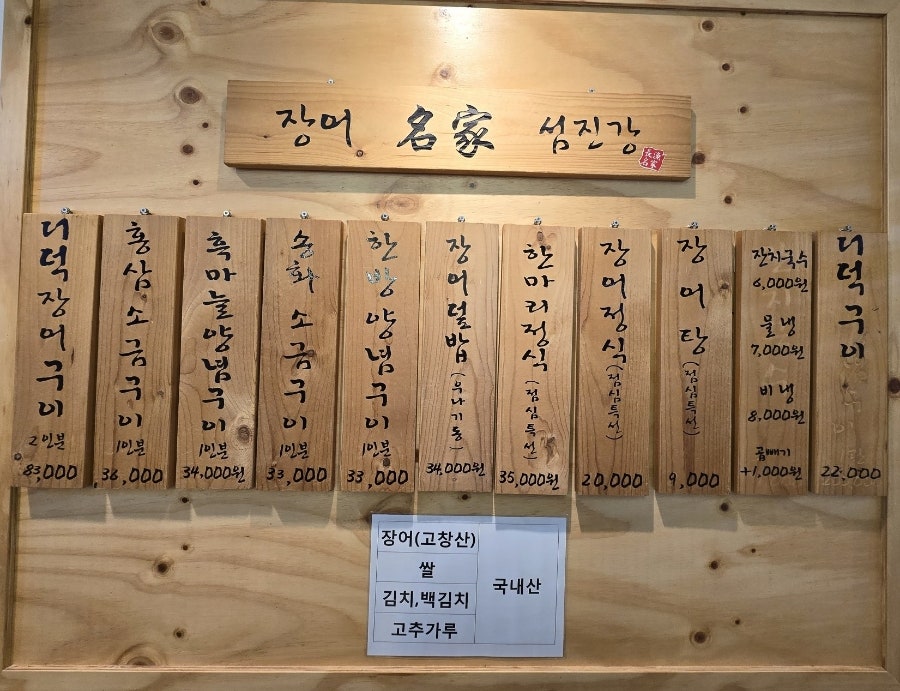 장어 名家 섬진강
더덕장어구이
2인분
83,000
홍삼소금구이
1인분
36,000
흑마늘양념구이
1인분
34,000원
송화소금구이
1인분
33,000
한방양념구이
1인분
33,000
장어덮밥(우나기동)
34,000원
한마리정식(점심특선)
35,000원
장어정식(점심특선)
20,000
장어탕(점심특선)
9,000
잔치국수
6,000원
물냉
7,000원
비냉
8,000원
곱빼기
+1,000원
더덕구이
22,000
장어(고창산)
쌀
김치,백김치
고추가루
국내산